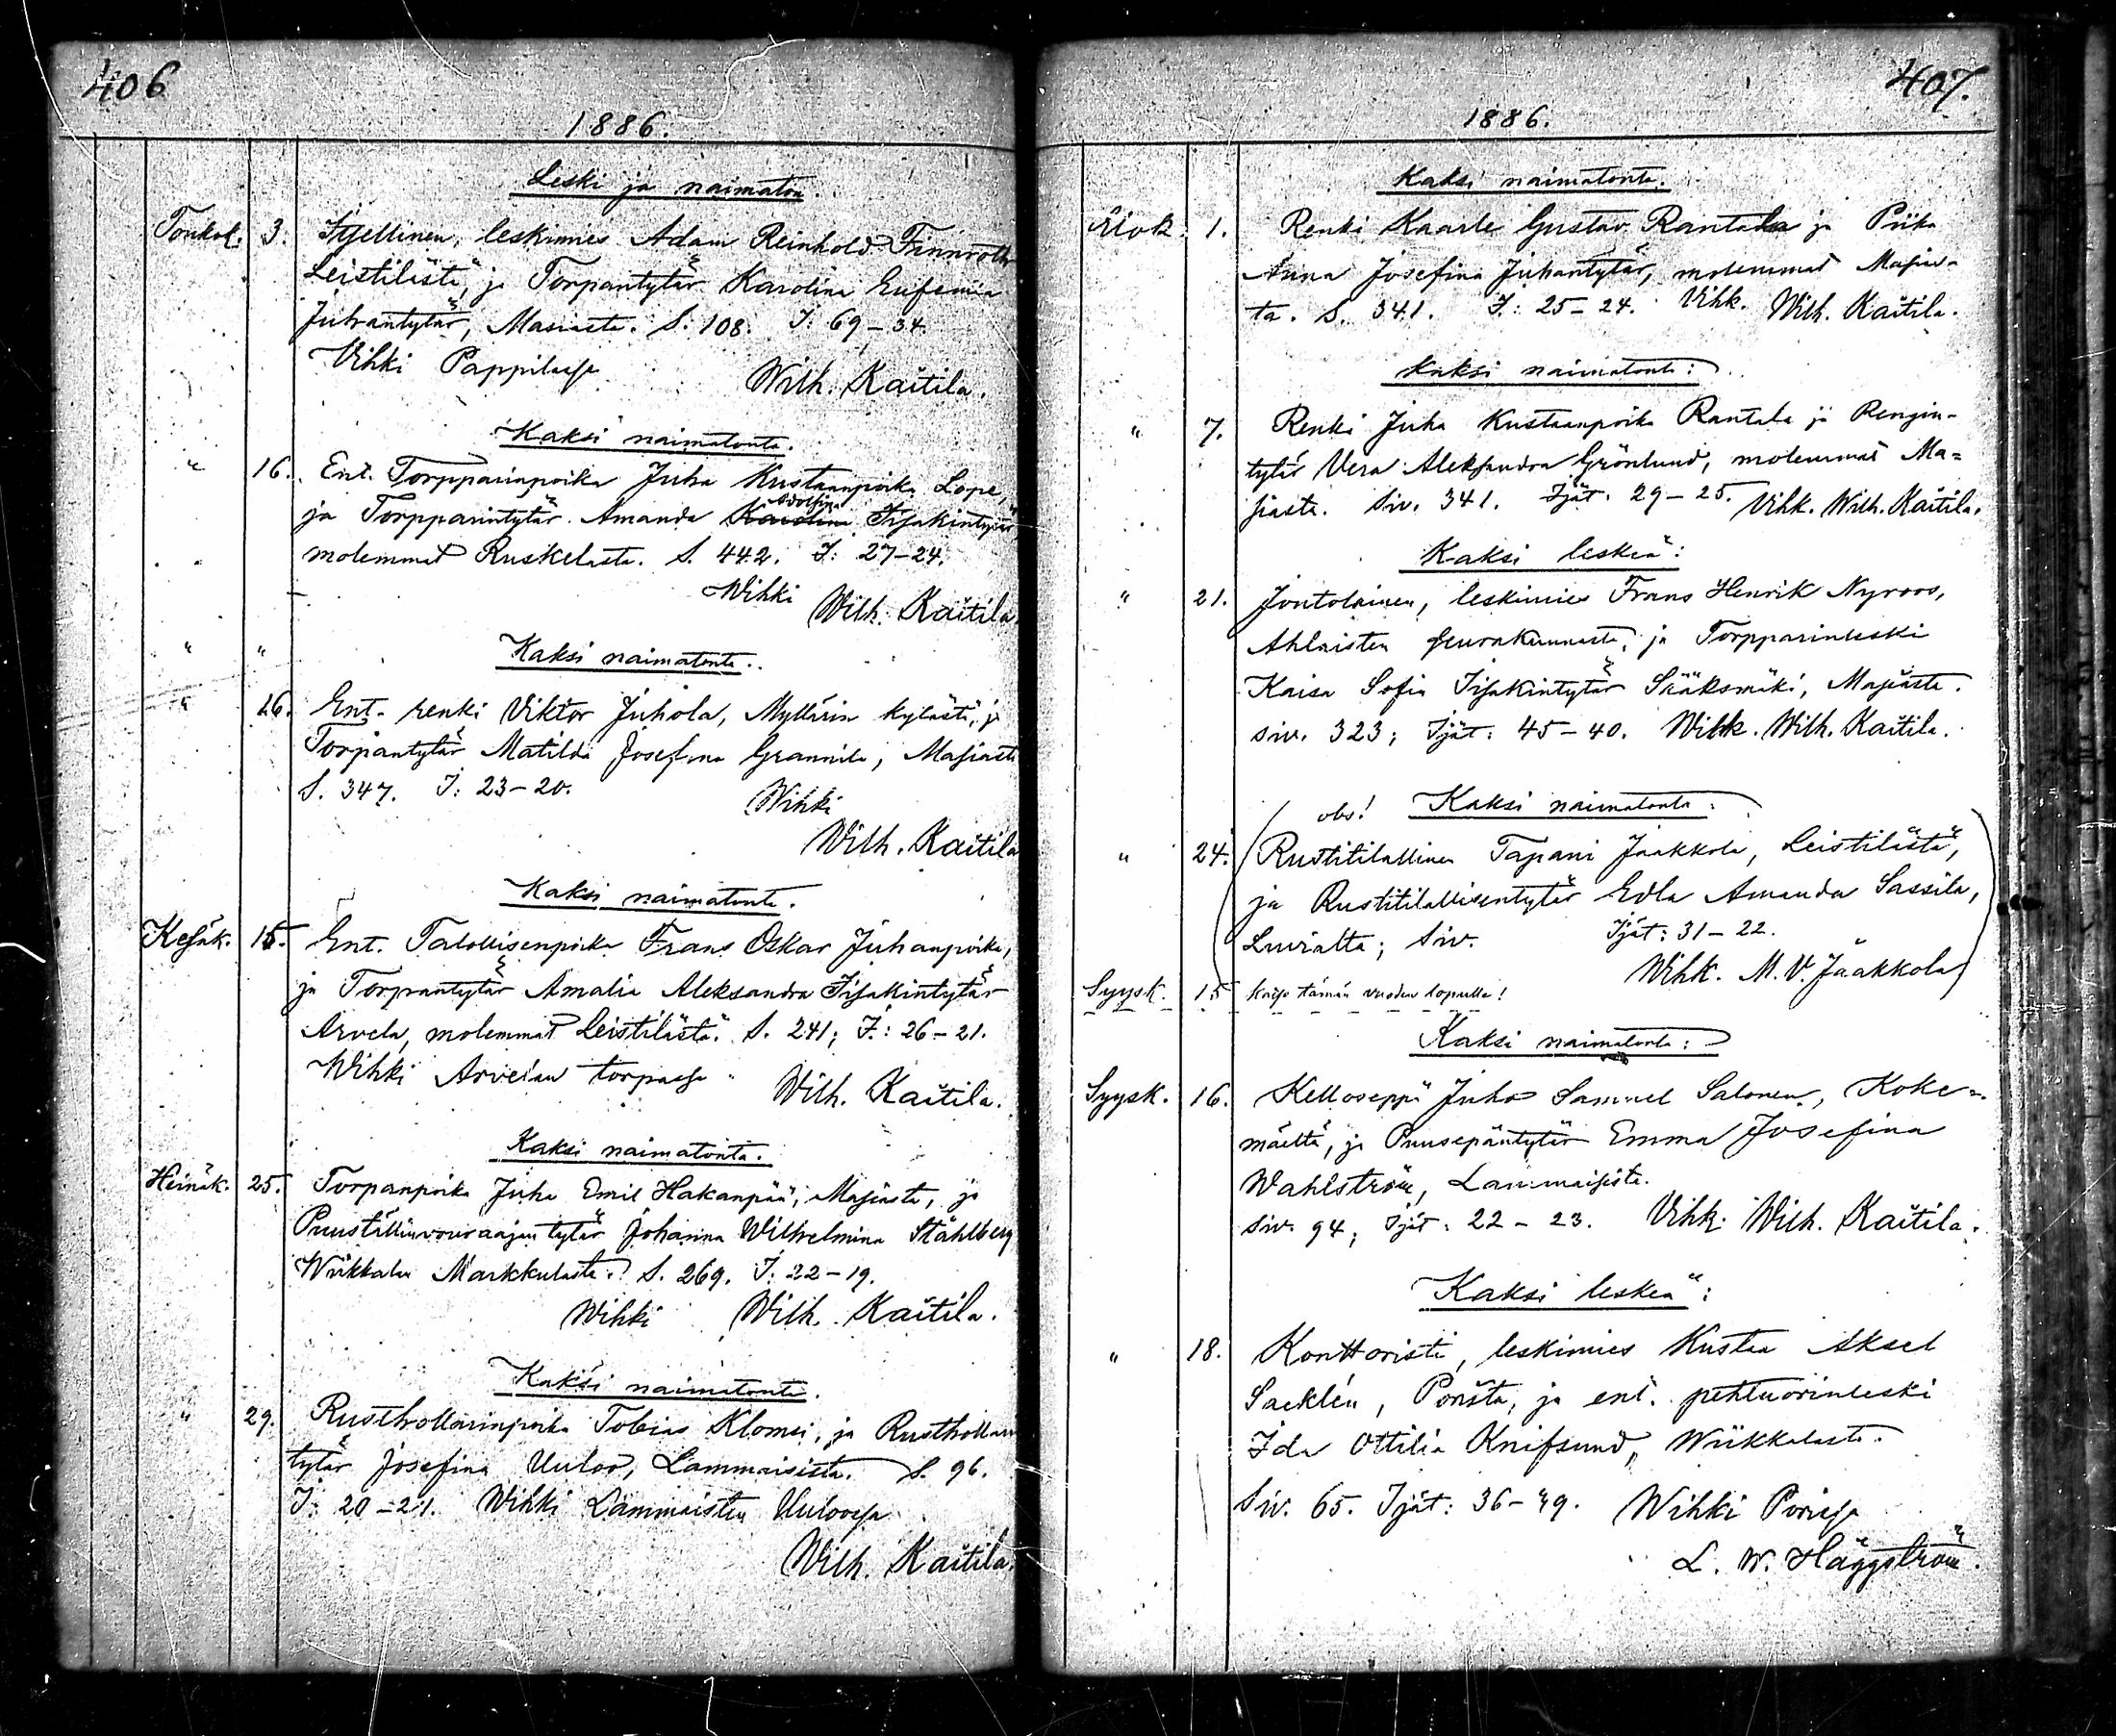 406
1886.
Leski ja naimaton.
Toukok. 3. Itsellinen, leskimies Adam Reinhold Finnroth
Leistilästä, ja Torpantytär Karolina Eufemia
Juhantytär, Masiasta. S. 108. I: 69-34.
Vihki Pappilassa
Wilh. Kaitila.
Kaksi naimatonta.
" 16. Ent. Torpparinpoika Juha Kustaanpoika Lope,
Adolfina
ja Torpparintytär Amanda Karolina Iisakintytär
molemmat Ruskelasta. S. 442. I: 27-24.
Wihki
Wilh. Kaitila
" "
Kaksi naimatonta.
" 26. Ent. renki Viktor Juhola, Myllärin kylästä, ja
Torpantytär Matilda Josefina Grannila, Masiasta
S. 347. I: 23-20.
Wihki
Wilh. Kaitila
Kaksi naimatonta.
Kesäk. 15. Ent. Talollisenpoika Frans Oskar Juhanpoika,
ja Torpantytär Amalia Aleksandra Iisakintytär
Arvela, molemmat Leistilästä. S. 241; I.: 26-21.
Wihki Arvelan torpassa
Wilh. Kaitila.
Kaksi naimatonta.
Heinäk. 25. Torpanpoika Juha Emil Hakanpää, Masiasta, ja
Puustellinvouraajan tytär Johanna Wilhelmina Ståhlberg
Wiikkalan Markkulasta. S. 269. I: 22-19.
Wihki Wilh. Kaitila.
Kaksi naimatonta.
" 29. Rusthollarinpoika Tobias Klomsi, ja Rusthollarin
tytär Josefina Uuloo, Lammaisista. S. 96.
I: 20-21. Wihki Lammaisten Uuloossa
Wilh. Kaitila.
407.
1886.
Kaksi naimatonta.
Elok. 1. Renki Kaarle Gustav Rantala ja Piika
Anna Josefina Juhantytär, molemmat Masias-
ta. S. 341. I.: 25-24. Vihk. Wilh. Kaitila.
Kaksi naimatonta:
" 7. Renki Juha Kustaanpoika Rantala ja Rengin-
tytär Vera Aleksandra Grönlund, molemmat Ma-
siasta. Siv. 341. Ijät. 29-25. Vihk. Wilh. Kaitila.
Kaksi leskeä:
" 21. Jontolainen, leskimies Frans Henrik Nyroos,
Ahlaisten seurakunnasta, ja Torpparinleski
Kaisa Sofia Iisakintytär Sääksmäki, Masiasta.
siv. 323; Ijät: 45-40. Wihk. Wilh. Kaitila.
obs! Kaksi naimatonta:
" 24. (Rustitilallinen Tapani Jaakkola, Leistilästä,
ja Rustitilallisentytär Edla Amanda Sassila,
Luvialta; Siv. Ijät: 31-22.
Wihk. M. V. Jaakkola)
Syysk. 15 Katso tämän vuoden lopulla!
Kaksi naimatonta:
Syysk. 16. Kelloseppä Juho Samuel Salonen, Koke-
mäeltä, ja Puusepäntytär Emma Josefina
Wahlström, Lammaisista.
Siv. 94; Ijät: 22-23. Vihk: Wilh. Kaitila.
Kaksi leskeä:
" 18. Konttoristi, leskimies Kustaa Aksel
Sacklén, Porista, ja ent. pehtuorinleski
Ida Ottilia Knifsund, Wiikkalasta.
Siv. 65. Ijät: 36-49. Wihki Porissa
L. W. Häggström.